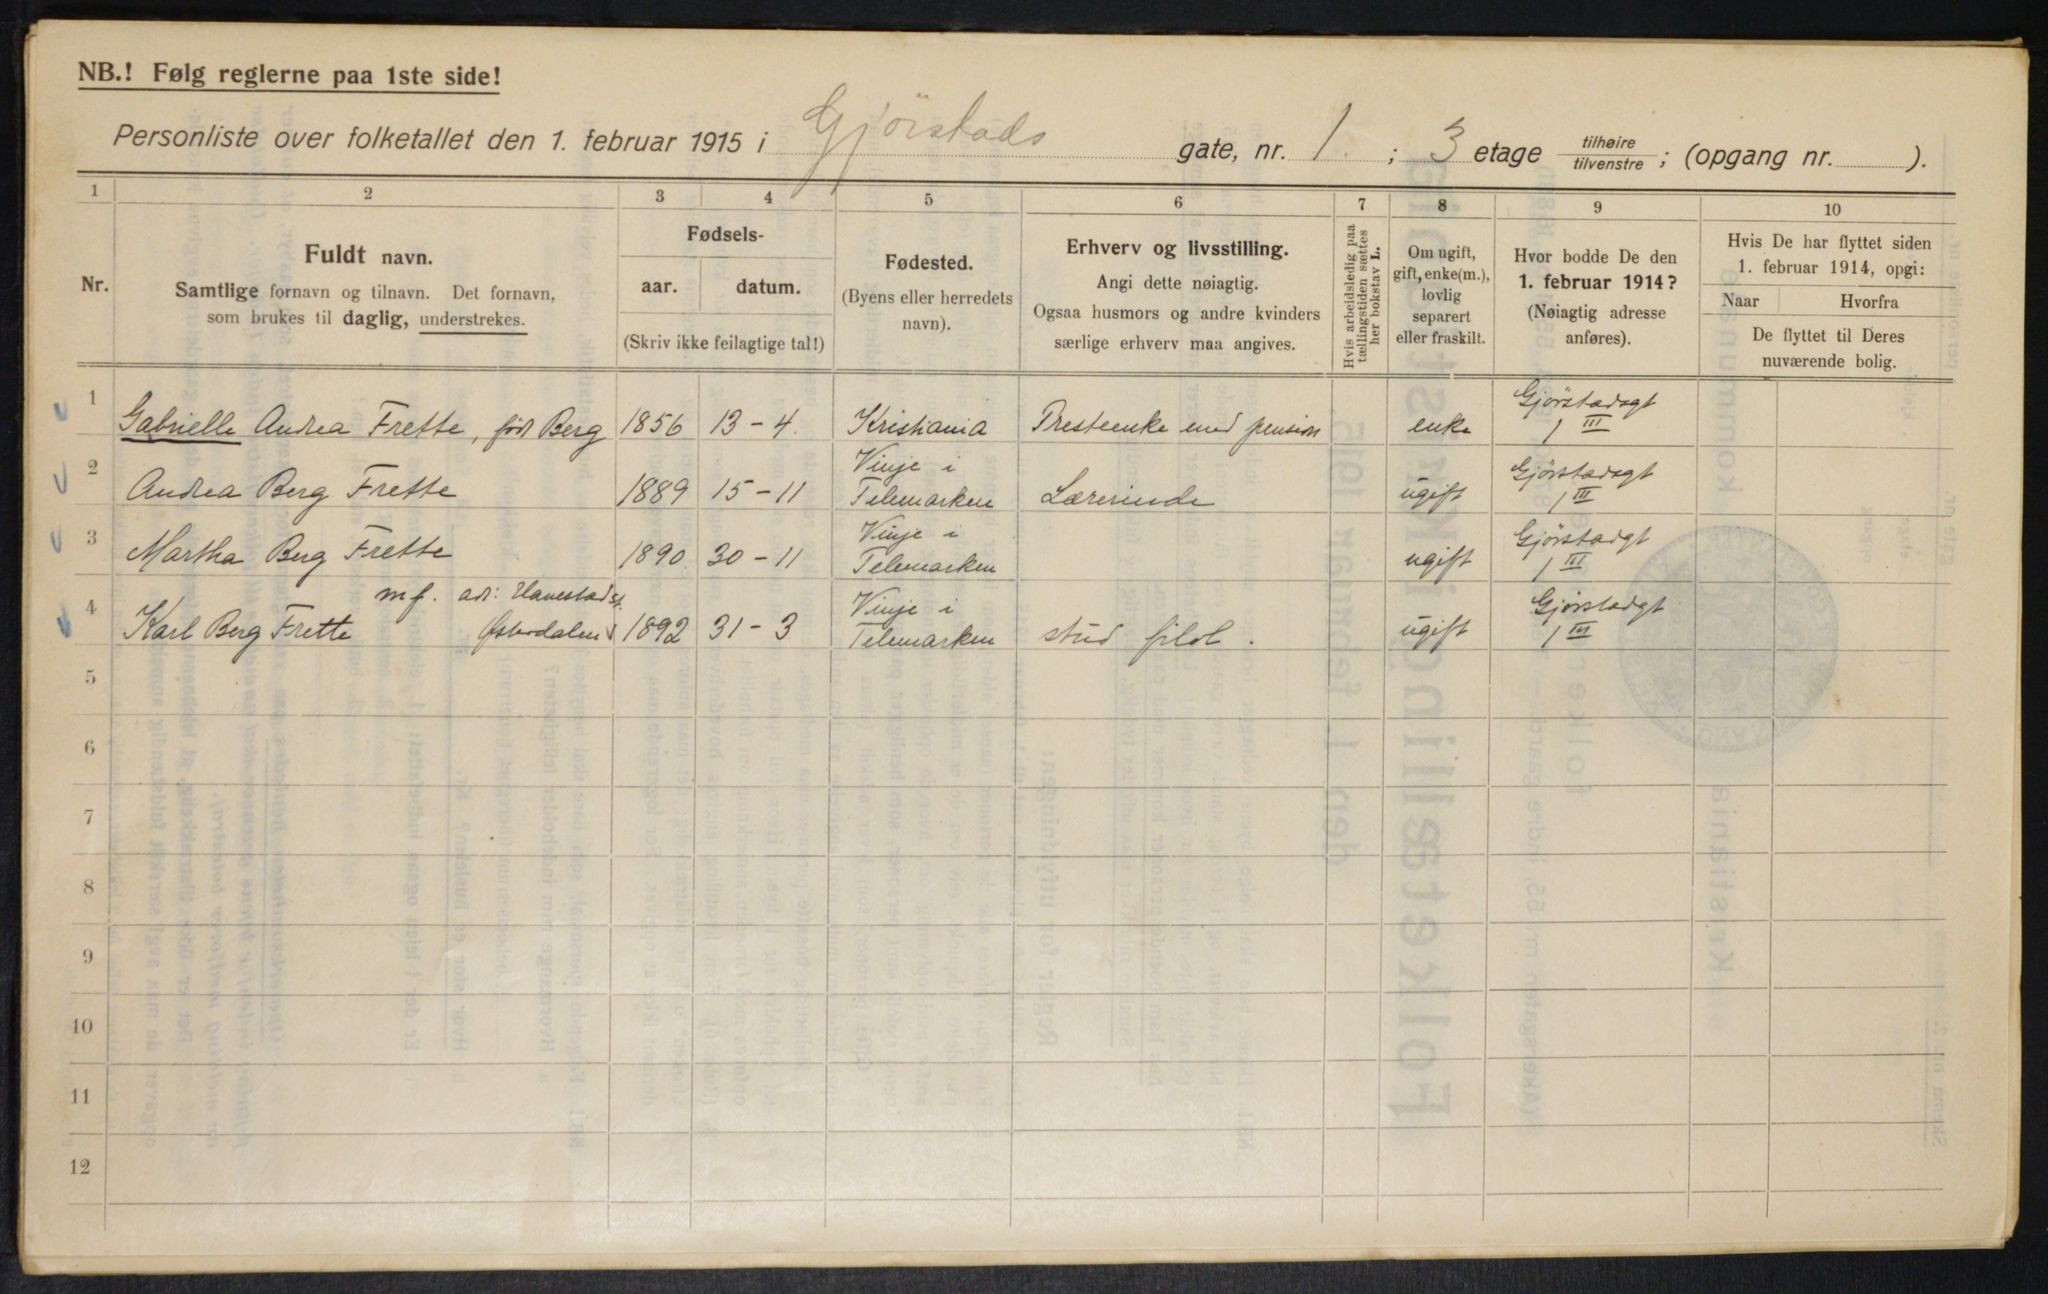 NB.! Følg reglerne paa 1ste side!
Personliste over folketallet den 1. februar 1915 i Gjörstads gate, nr. 1. ; 3 etage tilhøire tilvenstre ; (opgang nr. ).
1 2 3 4 5 6 7 8 9 10
Nr.
Fuldt navn.
Samtlige fornavn og tilnavn. Det fornavn,
som brukes til daglig, understrekes.
Fødsels-
aar. datum.
(Skriv ikke feilagtige tal!)
Fødested.
(Byens eller herredets
navn).
Erhverv og livsstilling.
Angi dette nøiagtig.
Ogsaa husmors og andre kvinders
særlige erhverv maa angives.
Hvis arbeidsledig paa
tællingstiden sættes
her bokstav L.
Om ugift,
gift, enke(m.),
lovlig
separert
eller fraskilt.
Hvor bodde De den
1. februar 1914?
(Nøiagtig adresse
anføres).
Hvis De har flyttet siden
1. februar 1914, opgi:
Naar Hvorfra
De flyttet til Deres
nuværende bolig.
1 Gabrielle Andrea Frette, født Berg 1856 13-4. Kristiania Presteenke med pension enke Gjörstadsgt 1 III
2 Andrea Berg Frette 1889 15-11 Vinje i Telemarken Lærerinde ugift Gjörstadsgt 1 III
3 Martha Berg Frette 1890 30-11 Vinje i Telemarken ugift Gjörstadgt 1 III
mf. adr: Hanestad st.
4 Karl Berg Frette Østerdalen 1892 31-3 Vinje i Telemarken stud filol. ugift Gjörstadgt 1 III
5
6
7
8
9
10
11
12